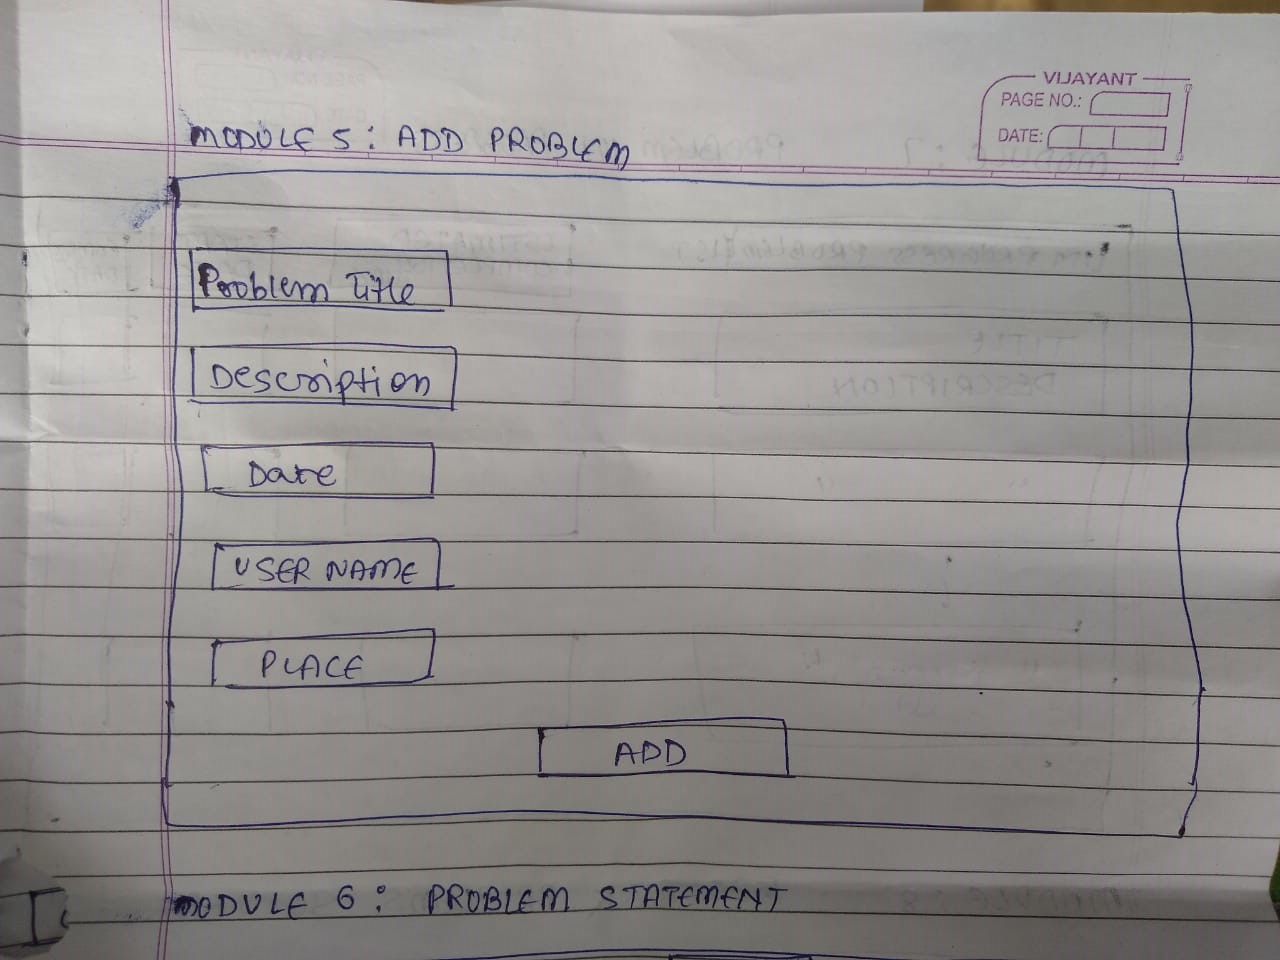 VIJAYANT
PAGE NO.:
DATE:
MODULE 5: ADD PROBLEM
Problem Title
Description
Date
USER NAME
PLACE
ADD
MODULE 6: PROBLEM STATEMENT